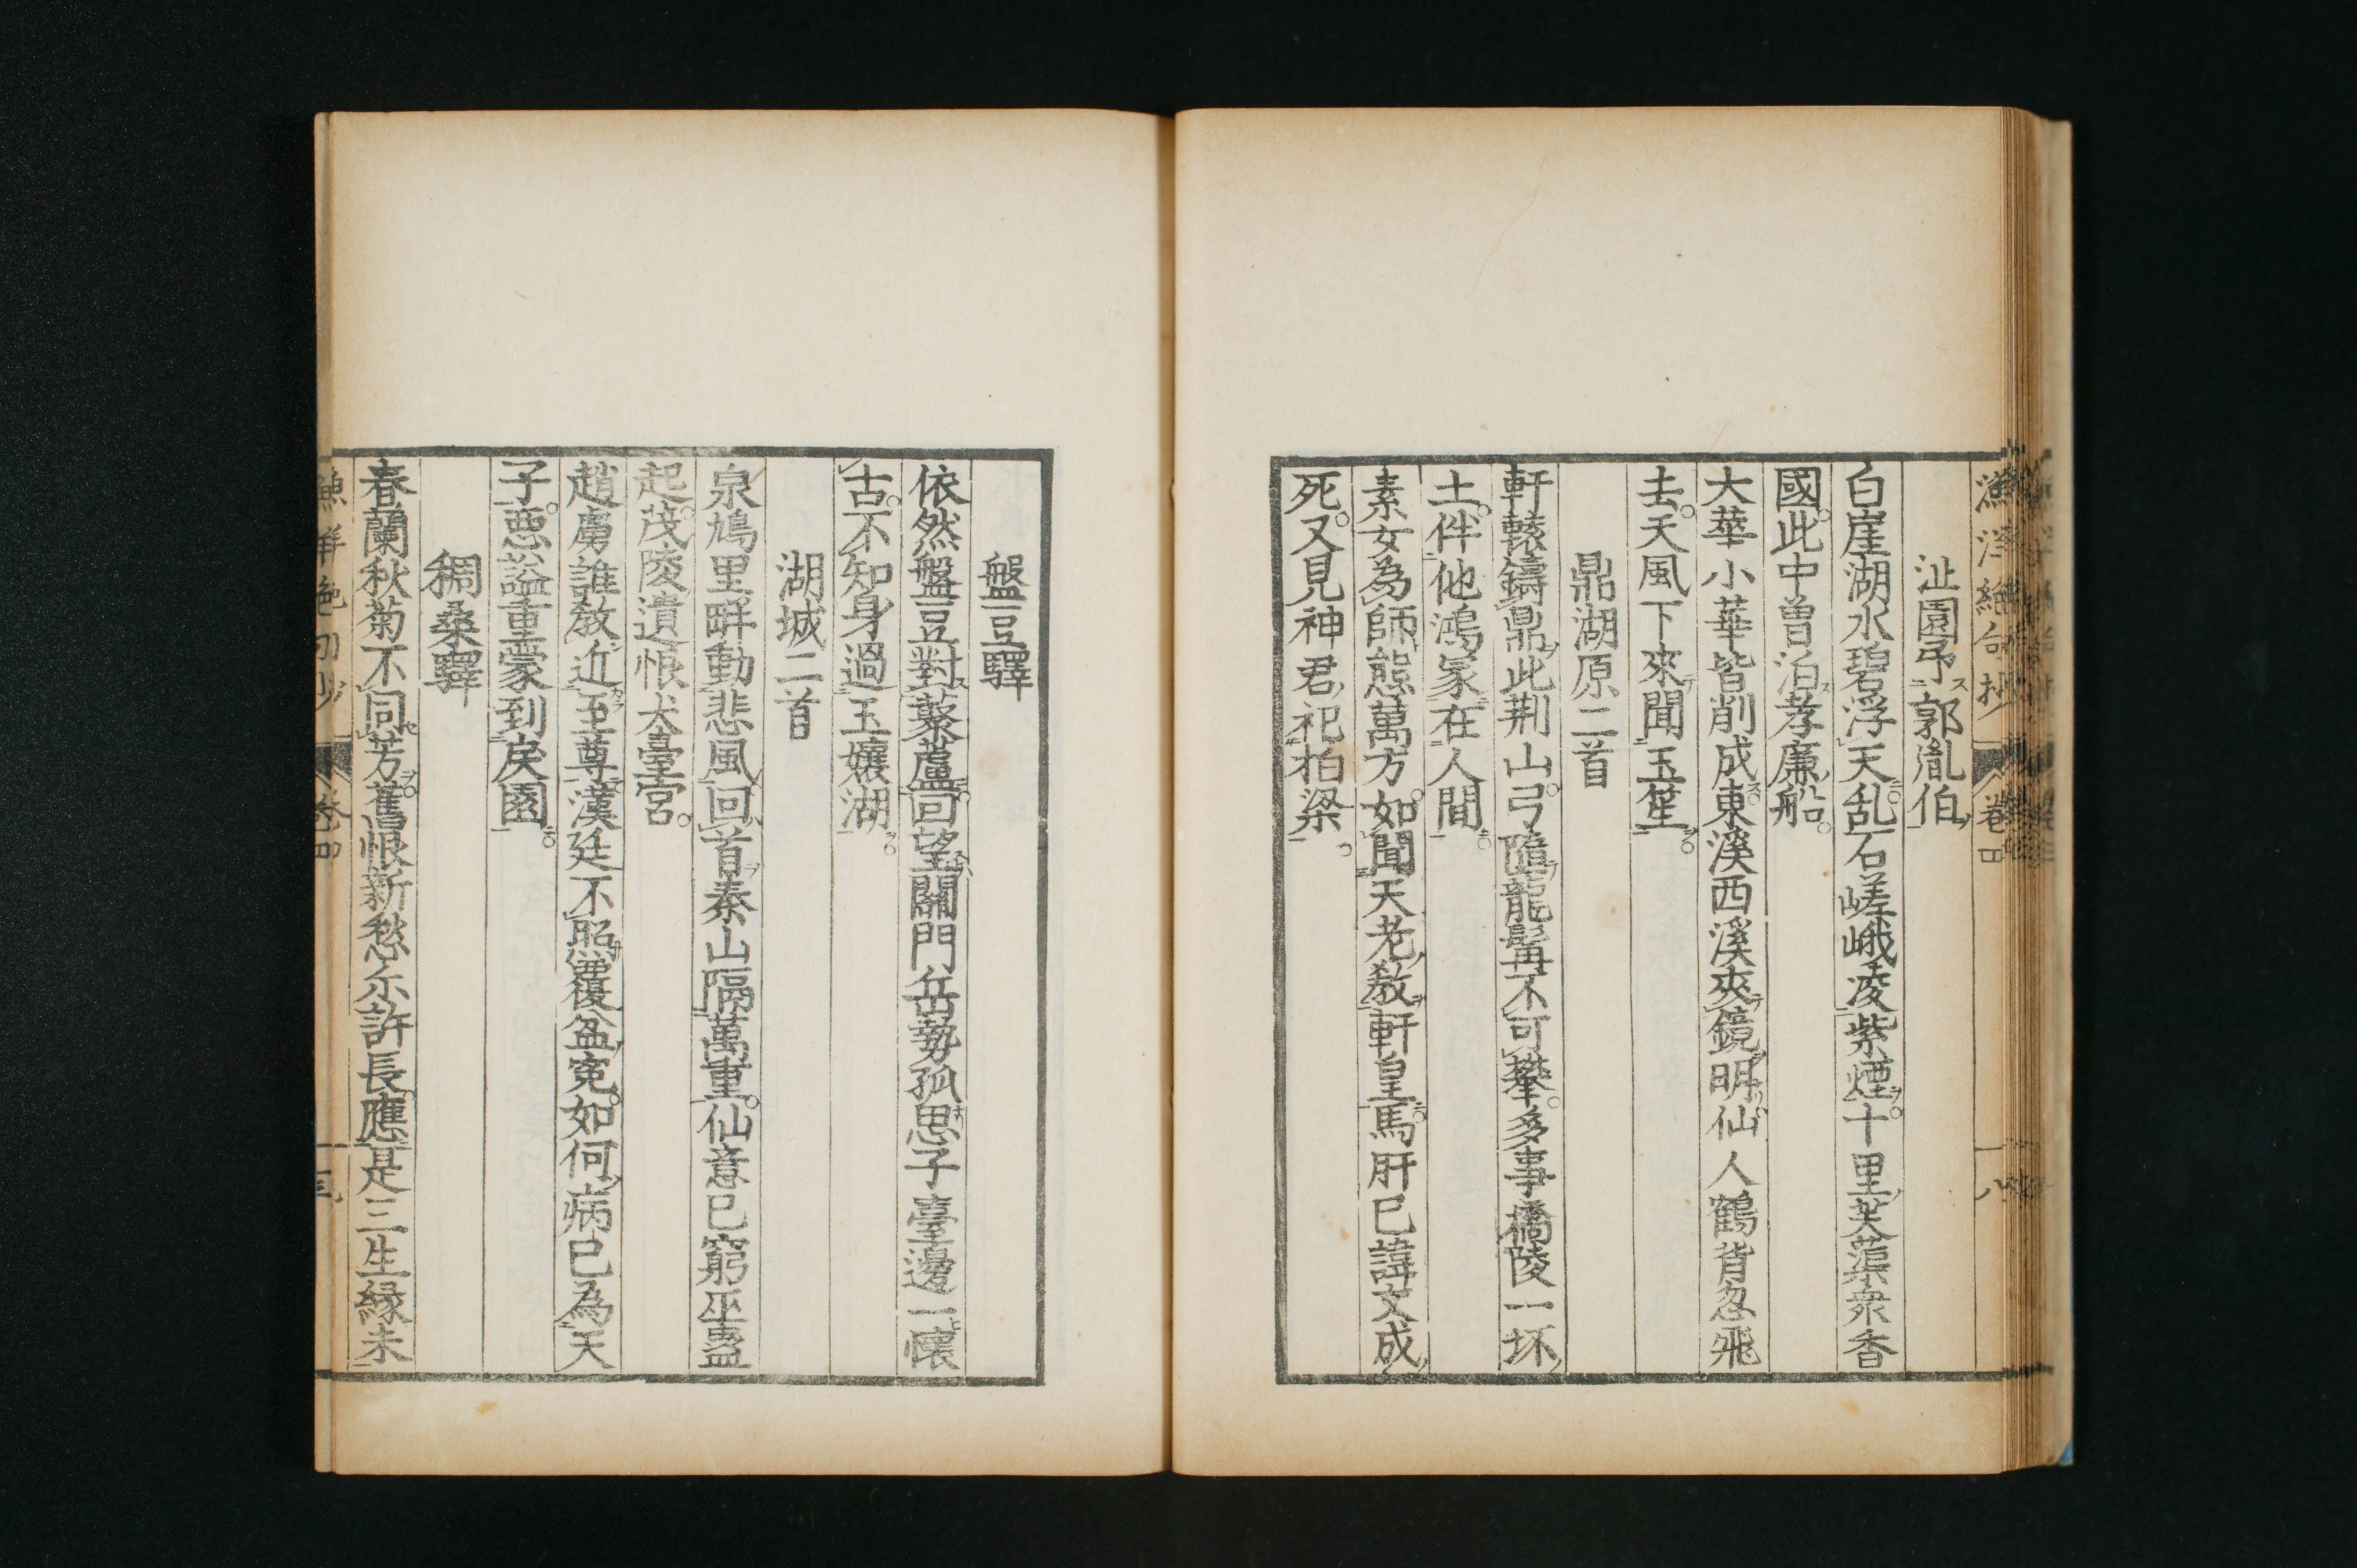 漁洋絶句抄
卷四
一八
沚園弔郭胤伯
白崖湖水碧浮天乱石嵯峨凌紫煙。十里芙蕖衆香
國。此中曽泊孝廉船。
大華小華皆削成東溪西溪夾鏡明仙人鶴背忽飛
去。天風下來聞玉笙。
鼎湖原二首
軒轅鑄鼎此荆山。弓隨龍髯不可攀。多事橋陵一抔
土。伴他鴻冢在人間。
素女為師態萬方。如聞天老教軒皇。馬肝已諱文成
死。又見神君祀柏梁。
盤豆驛
依然盤豆對藂蘆。回望關門岳勢孤思子臺邊一懷
古。不知身過玉孃湖。
湖城二首
泉鳩里畔動悲風回首秦山隔萬重。仙意已窮巫蠱
起。茂陵遺恨犬臺宮。
趙虜誰教近至尊漢廷不照覆盆寃。如何病已為天
子。惡謚重蒙到戾園。
稠桑驛
春蘭秋菊不同芳。舊恨新愁尓許長。應是三生縁未
卷四